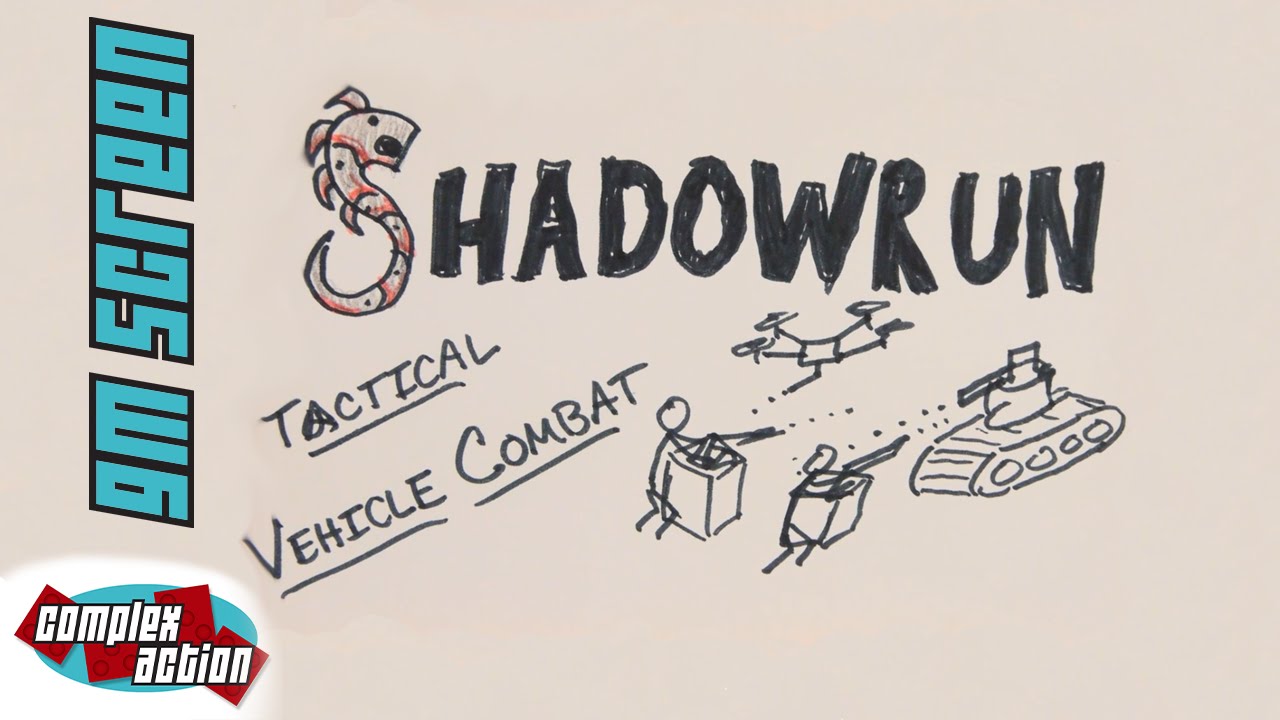 GM SCREEN
SHADOWRUN
TACTICAL
VEHICLE COMBAT
COMPLEX
ACTION